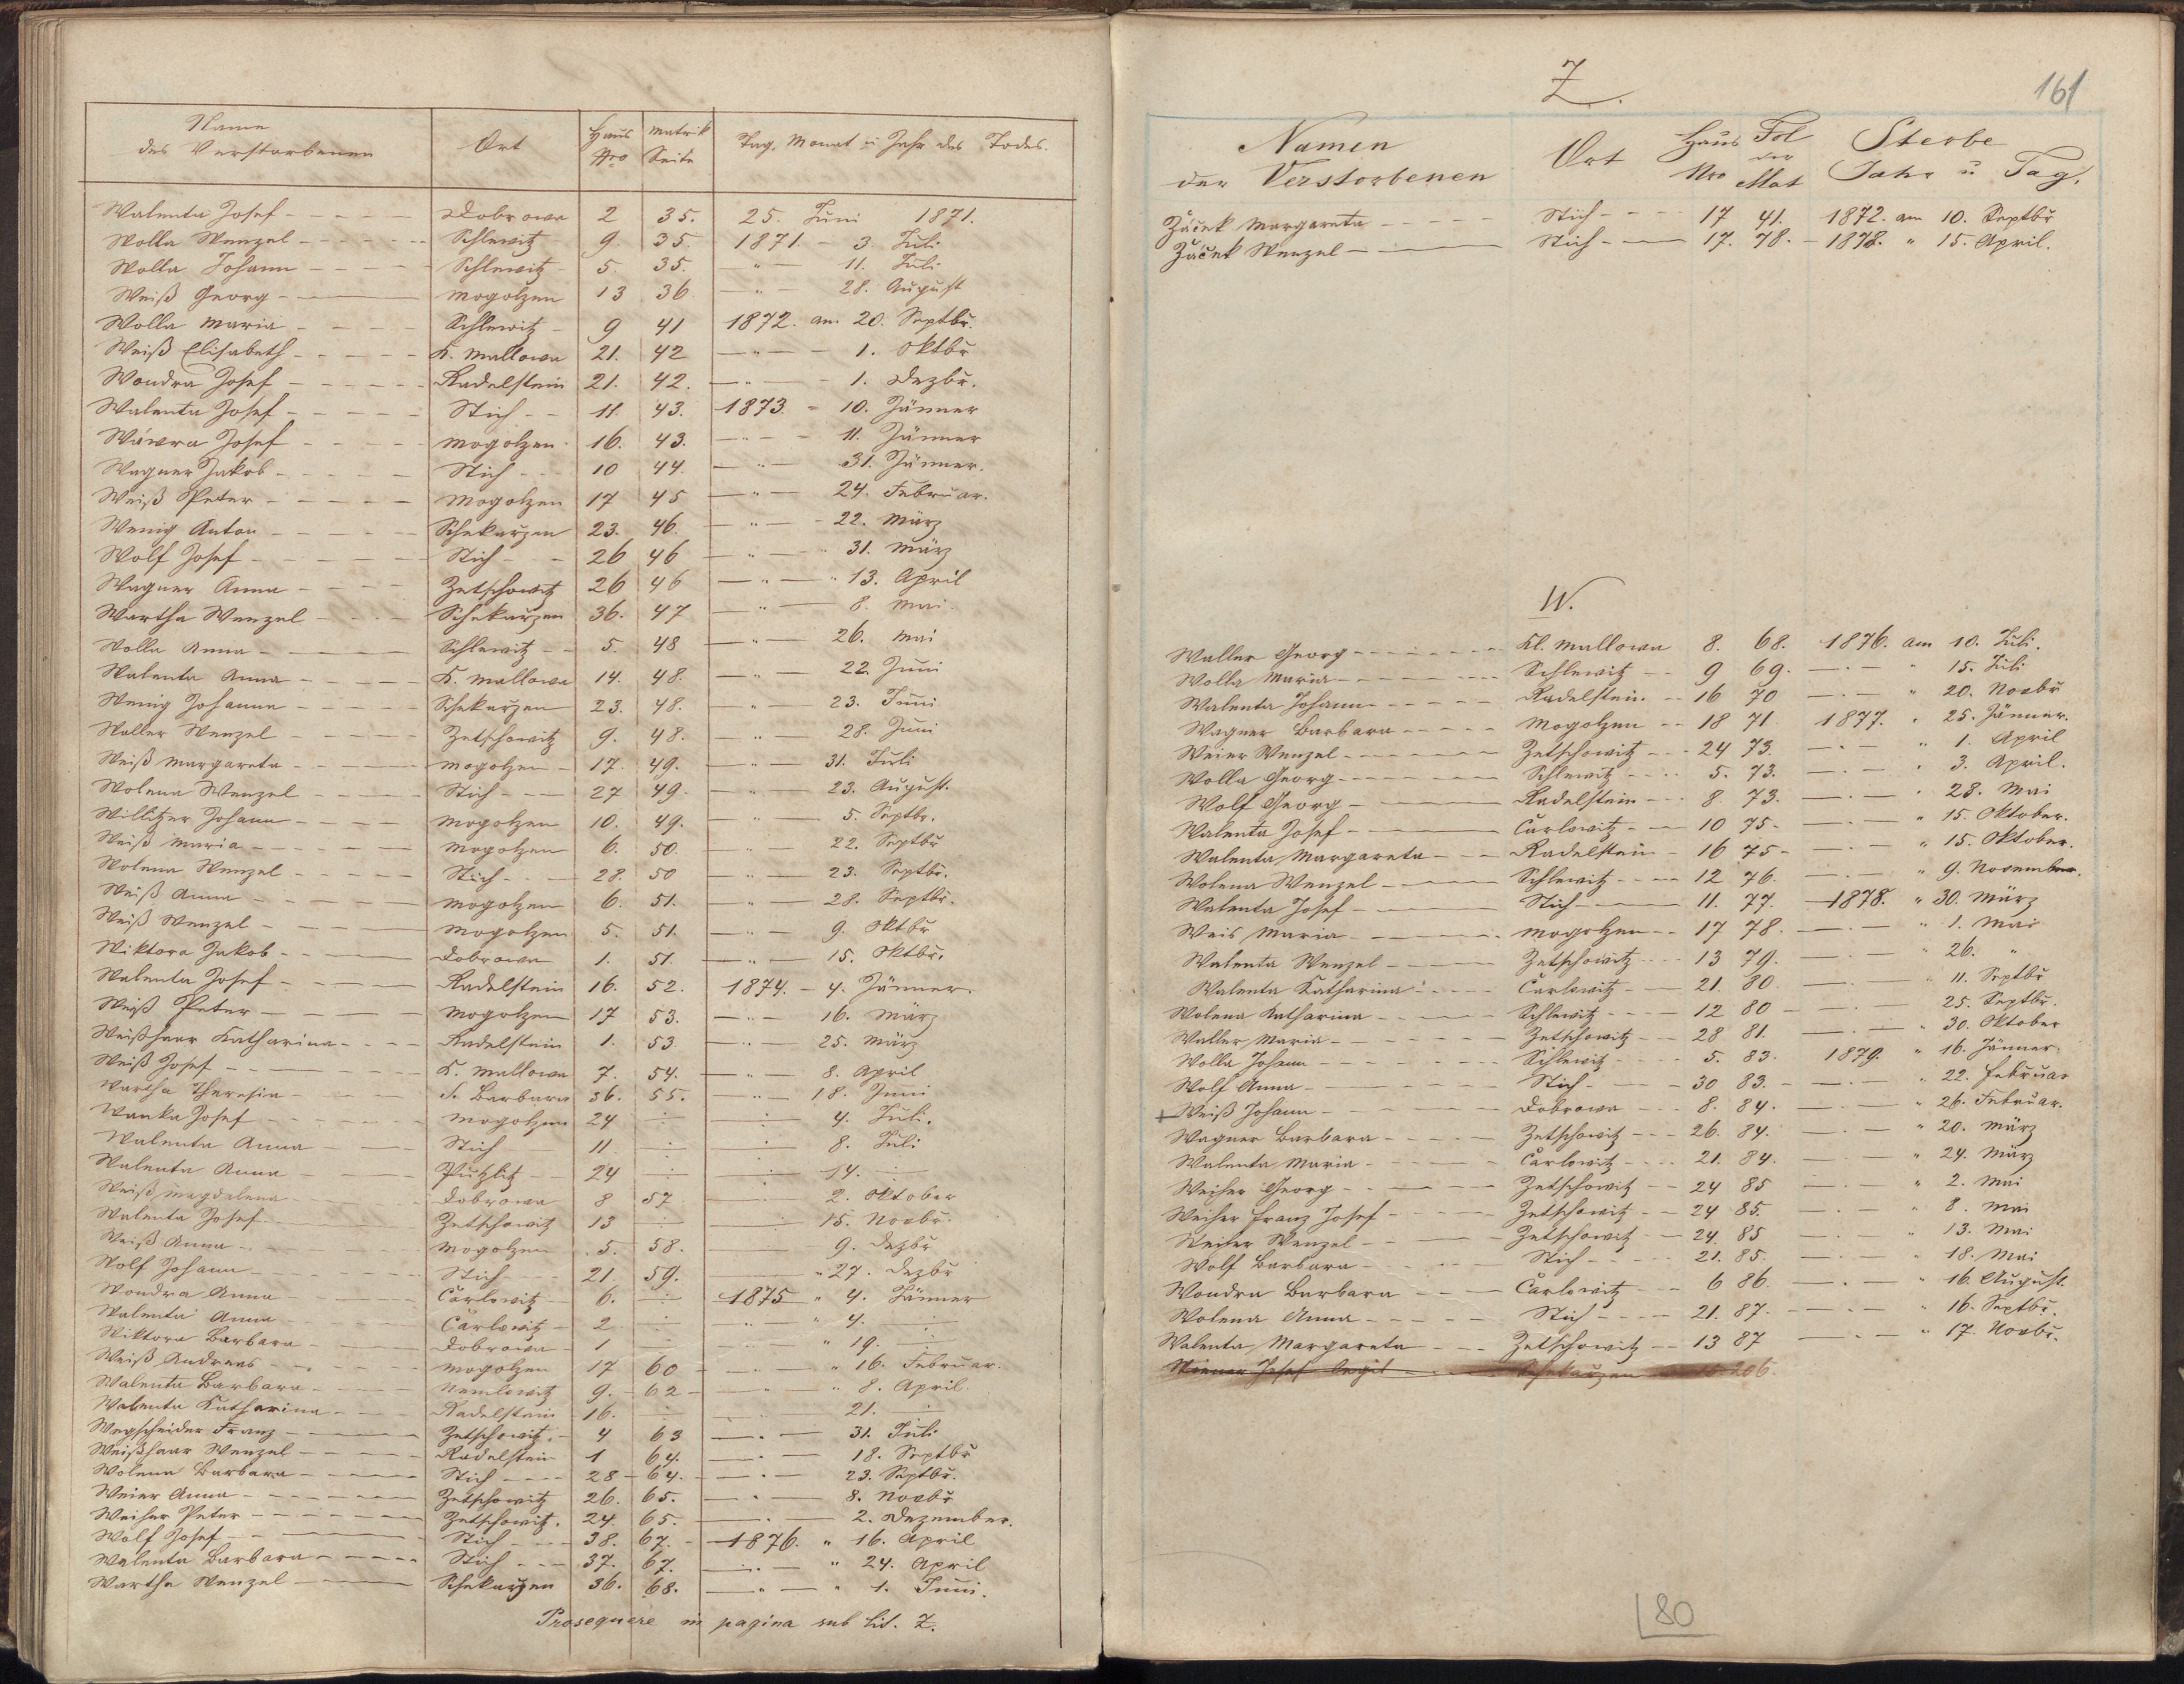 Name
des Verstorbenen
Ort
Haus Nro
Matrik Seite
Tag, Monat u Jahr des Todes.
Walenta Josef - - - - - Dobrowa 2 35. 25. Juni 1871.
Wolla Wenzel - - - - - Schlewitz 9. 35. 1871. - 3. Juli
Wolla Johann - - - - Schlewitz 5. 35. — " — 11. Juli
Weiß Georg - — Mogolzen 13 36 — " — 28. August
Wolla Maria - - - - Schlewitz - 9 41 1872. am 20. Septbr.
Weiß Elisabeth - - - - - K. Mallowa 21. 42 — " — - 1. Oktbr
Wondra Josef - - - - - Radelstein 21. 42. — " — - 1. Dezbr.
Walenta Josef - - - - - Stich - - 11. 43. 1873. - 10. Jänner
Wáwra Josef - - - - Mogolzen 16. 43. — " — 11. Jänner
Wagner Jakob - - - - Stich - - 10 44. — " — 31. Jänner.
Weiß Peter - - - - - Mogolzen 17 45 — " — 24. Februar.
Wenig Anton - - - - - Schekarzen 23. 46. — " — - 22. März
Wolf Josef - - - - - Stich - - 26 46 — " — " 31. März
Wagner Anna - - - - Zetschowitz 26 46 — " — " 13. April
Wartha Wenzel - - - - Schekarzen 36. 47 — " — 8. Mai.
Wolla Anna - - - - Schlewitz - - 5. 48 — " — 26. Mai
Walenta Anna - - - - - K. Mallowa 14. 48. — " — 22. Juni
Wenig Johanna - - - - - Schekarzen 23. 48. — " — 23. Juni
Waller Wenzel - - - - - Zetschowitz 9. 48. — " — 28. Juni
Weiß Margareta - - - - Mogolzen - 17. 49. — " — 31. Juli
Wolena Wenzel - - - - - Stich - - - 27 49. — " — 23. August.
Willitzer Johann - - - - Mogolzen 10. 49. — " — 5. Septbr.
Weiß Maria - - - - - Mogolzen 6. 50. — " — 22. Septbr
Wolena Wenzel - - - - - Stich - - 28. 50 — " — 23. Septbr.
Weiß Anna - - - - - Mogolzen 6. 51. — " — 28. Septbr.
Weiß Wenzel - - - - Mogolzen 5. 51. — " — 9. Oktbr
Wiktora Jakob - - - Dobrowa 1. 51. — " — 15. Oktbr.
Walenta Josef - - - - Radelstein 16. 52. 1874. - 4. Jänner.
Weiß Peter - - - - Mogolzen 17 53. — " — 16. März
Weißhaar Katharina - - - - Radelstein 1. 53. — " — 25. März
Weiß Josef - - - - K. Mallowa 7. 54. — " — 8. April
Wartha Theresia - - - S. Barbara 36. 55. — " — 18. Juni
Wanka Josef - - - - Mogolzen 24 ÷ ÷ 4. Juli.
Walenta Anna - - - Stich 11 ÷ ÷ 8. Juli
Walenta Anna - - - Putzlitz - 24 ÷ ÷ 14. ÷
Weiß Magdalena - - - Dobrowa 8 57 ÷ 2. Oktober
Walenta Josef - - - Zetschowitz 13 ÷ ÷ 15. Novbr.
Weiß Anna - - - Mogolzen 5. 58. — 9. Dezbr
Wolf Johann - - - Stich - - - 21 59. — " 27. Dezbr
Wondra Anna - - - Čarlowitz - 6. ÷ 1875 " 4. Jänner
Walenta Anna - - - Čarlowitz - 2 ÷ — " 4. ÷
Wiktora Barbara - - - Dobrowa - 1 ÷ " 19. ÷
Weiß Andreas - - - - Mogolzen 17 60 — " 16. Februar.
Walenta Barbara - - - Nemlowitz 9. - 62 - — " 8. April.
Walenta Katharina - - - Radelstein - 16. ÷ — 21. ÷
Wegscheider Franz - - - Zetschowitz. - 4 63 — . — 31. Juli
Weißhaar Wenzel - - - - Radelstein 1 64. — . — 18. Septbr
Wolena Barbara - - - - Stich - - - - 28 - 64. — . — 23. Septbr.
Weier Anna - - - - - Zetschowitz 26. 65. — . — 8. Novbr
Weiher Peter - - - - - Zetschowitz. 24. 65. — . — 2. Dezember.
Wolf Josef - - - Stich - - - - 38. 67. - 1876. " 16. April
Walenta Barbara - - - - - Stich - - - 37. 67. — . — " 24. April
Wartha Wenzel - - - Schekarzen 36. 68. — " — " 1. Juni.
Prosequere in pagina sub lit. Z.
161
Z.
Namen
der Verstorbenen
Ort
Haus Nro
Fol der Mat
Sterbe
Jahr u Tag.
Žáček Margareta - - - - Stich - - - 17 41. 1872. am 10. Septbr
Žáček Wenzel - — Stich - — 17. 78. - 1878. " 15. April.
W.
Waller Georg - - - - - - Kl. Mallowa 8. 68. 1876. am 10. Juli.
Wolla Maria - - - - - - Schlewitz - - 9 69. — . — " 15. Juli
Walenta Johann - - - - - Radelstein - - 16 70 — . — " 20. Novbr
Wagner Barbara - - - - - Mogolzen - - 18 71 1877. " 25. Jänner.
Weier Wenzel - - - - - - Zetschowitz - - - 24 73. — . — " 1. April
Wolla Georg - - - - - - Schlewitz - - - - 5. 73. — . — " 3. April.
Wolf Georg - - - - Radelstein - - - 8. 73. — . — " 28. Mai
Walenta Josef - - - Čarlowitz - - 10 75 - — . — " 15. Oktober.
Walenta Margareta - - - Radelstein - 16 75 - — . — " 15. Oktober.
Wolena Wenzel - - - Schlewitz - - - - 12 76. — . — " 9. November.
Walenta Josef - - - Stich - — 11. 77. 1878. " 30. März
Weis Maria - - - - - Mogolzen - - 17 78. — . — " 1. Mai
Walenta Wenzel - - - - Zetschowitz - - - 13 79. — . — " 26. "
Walenta Katharina - - - - Čarlowitz - - 21. 80. — . — " 11. Septbr
Wolena Katharina - - - - Schlewitz - - - - 12 80 — . — " 25. Septbr.
Waller Maria - - - - - - Zetschowitz - - - 28 81. — . — " 30. Oktober
Wolla Johann - - - - - - Schlewitz - - - 5. 83. 1879. " 16. Jänner.
Wolf Anna - - - - - - Stich - - - - 30 83. — . — " 22. Februar
+ Weiß Johann - - - - - Dobrowa - - - 8. 84. — . — " 26. Februar.
Wagner Barbara - - - - Zetschowitz - - - 26. 84. — . — " 20. März
Walenta Maria - - - - - Čarlowitz - - - - 21. 84. — . — " 24. März
Weiher Georg - - - - - Zetschowitz - - 24 85 — . — " 2. Mai
Weiher Franz Josef - - - - - Zetschowitz - - 24 85. — . — " 8. Mai
Weiher Wenzel - - - - - Zetschowitz - - 24. 85 — . — " 13. Mai
Wolf Barbara - - - - - Stich - - - - 21. 85. — . — " 18. Mai
Wondra Barbara - - - - Čarlowitz - - - 6 86. — . — " 16. August.
Wolena Anna - - - - - Stich - - - - 21. 87. — . — " 16. Septbr.
Walenta Margareta - - - Zetschowitz - - 13 87 — . — " 17. Novbr.
Josef Schekarzen 206.
80